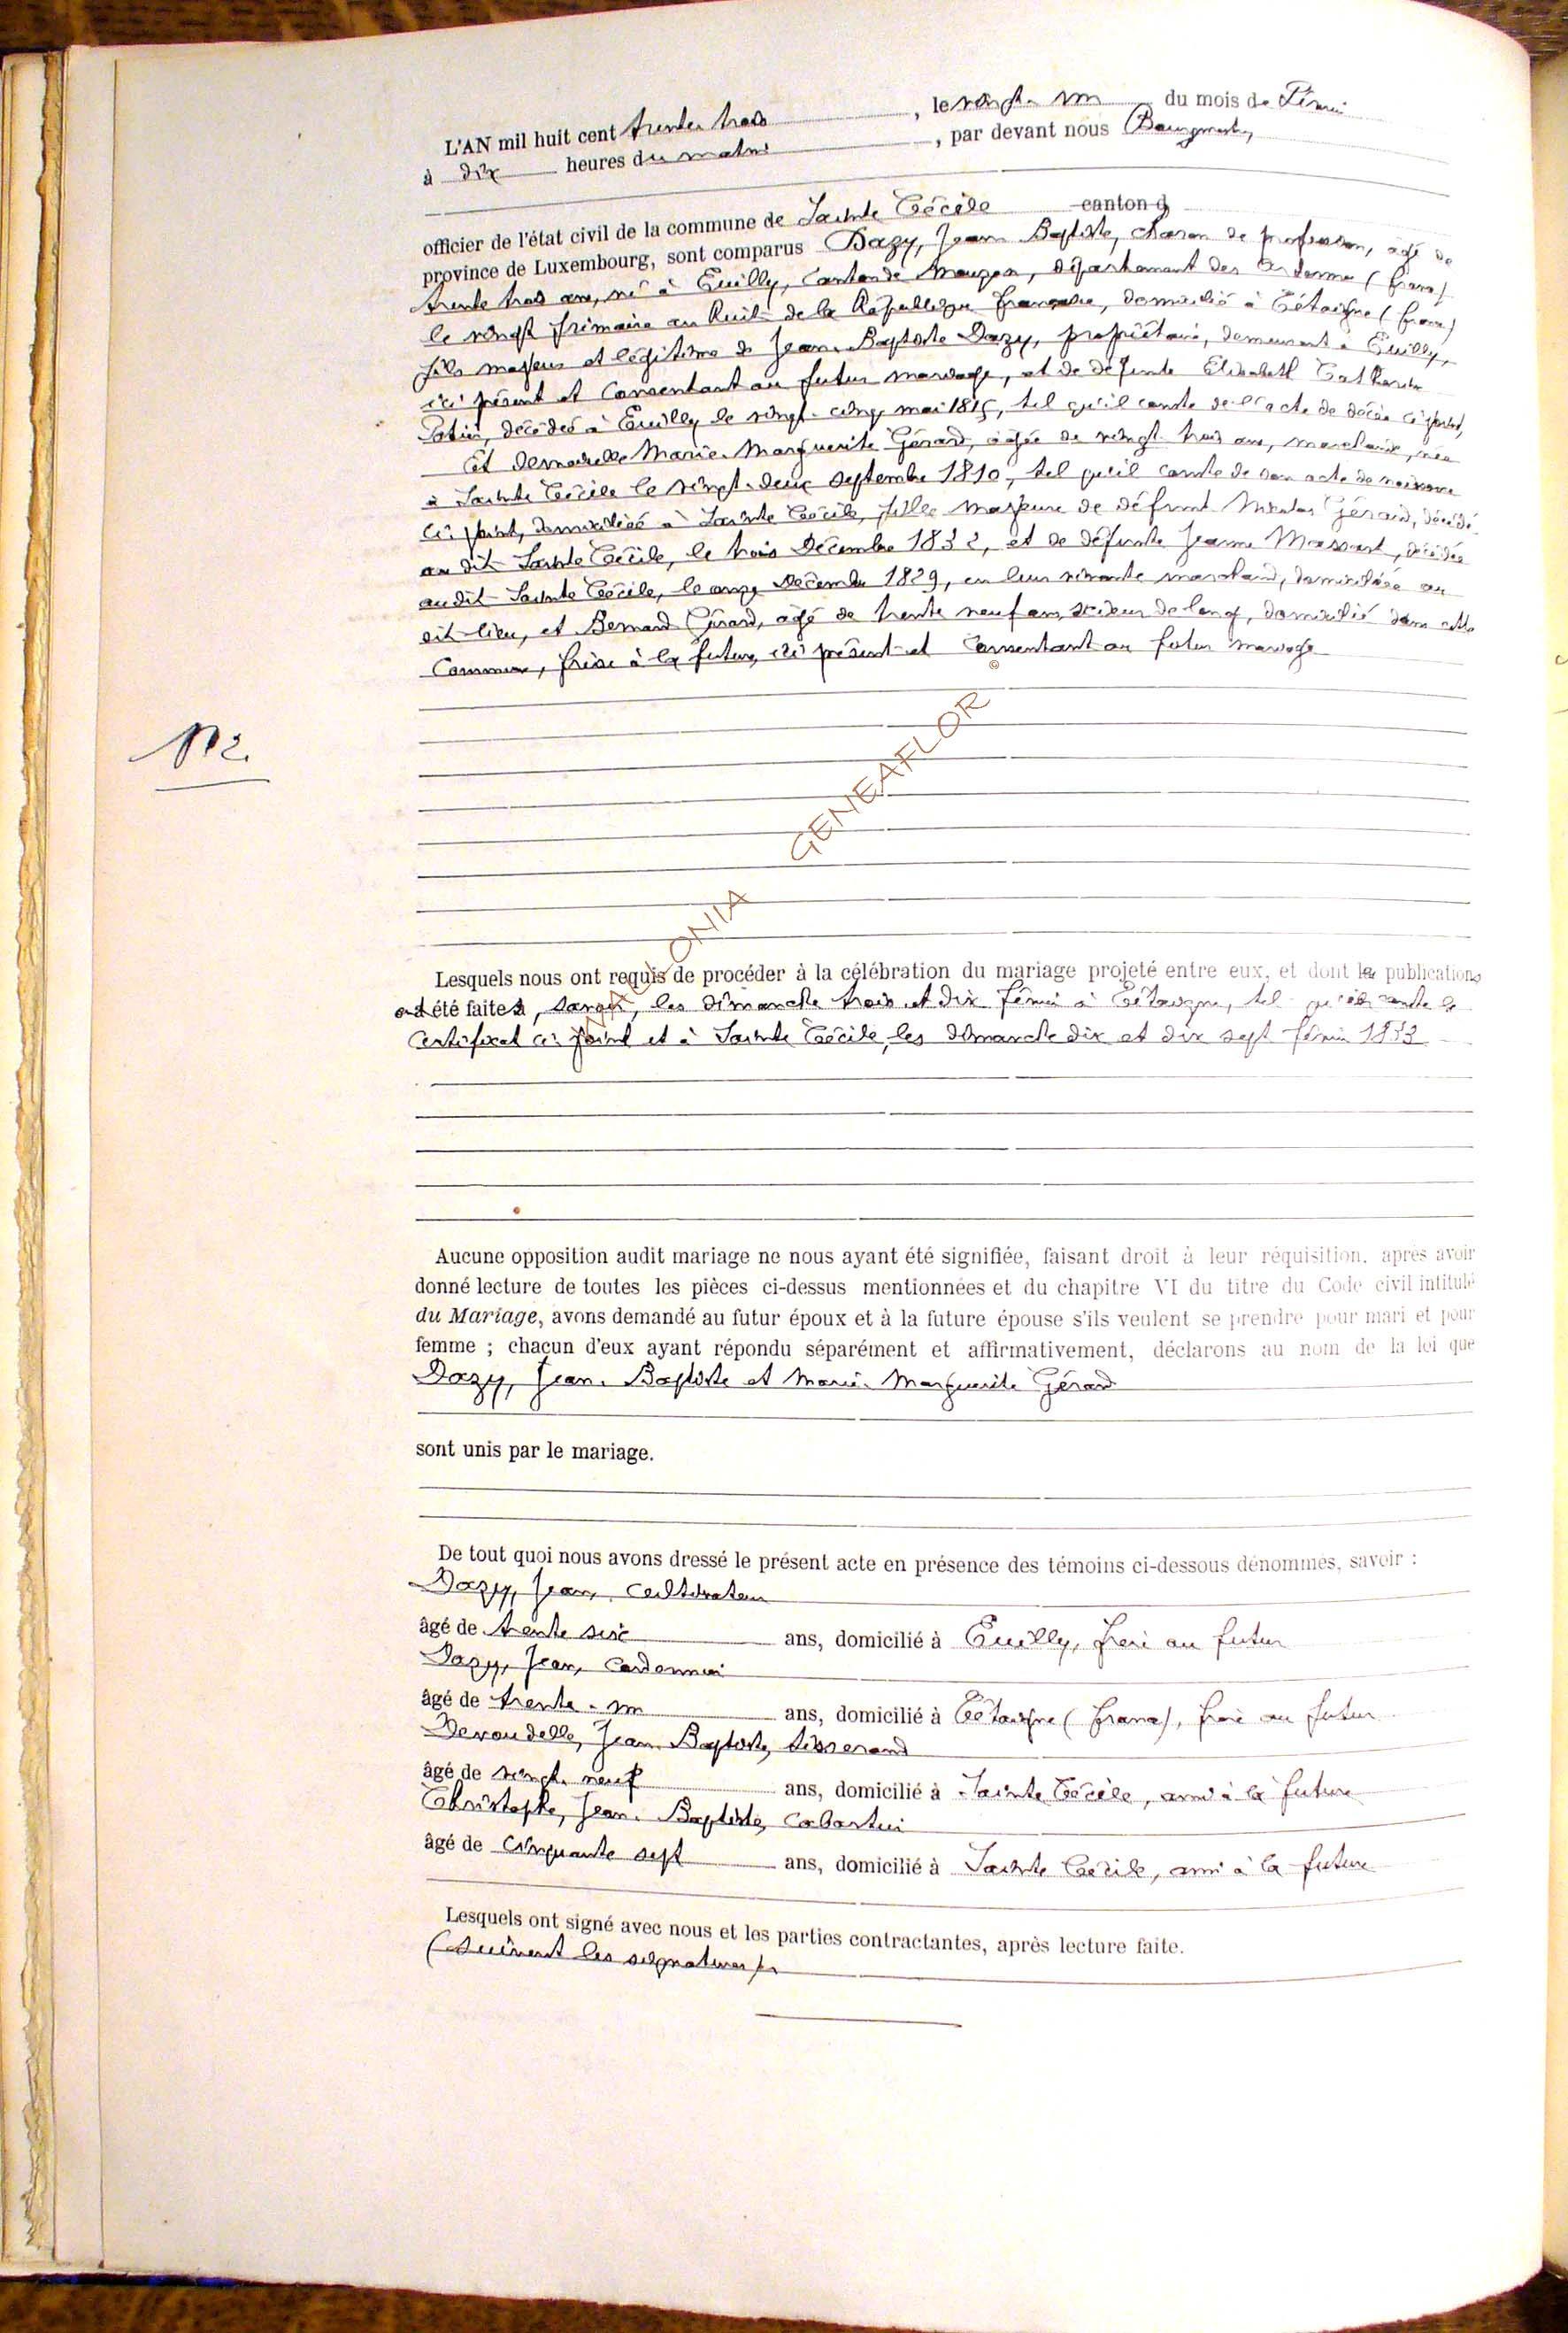 L'AN mil huit cent trente trois, le vingt-un du mois de Février
à dix heures du matin, par devant nous
officier de l'état civil de la commune de Sainte Cécile canton d
province de Luxembourg, sont comparus Dazy, Jean Baptiste, charon de profession, agé de
trente trois ans, né à Euilly, Canton de Mouzon, département des Ardennes (france)
le vingt frimaire an huit de la République française, domicilié à Tétaigne (france)
fils majeur et légitime de Jean-Baptiste Dazy, propriétaire, demeurant à Euilly,
ici présent et consentant au futur mariage, et de défunte Elisabeth Catherine
décédée à Euilly le vingt-cinq mai 1815, tel qu'il conste de l'acte de décès ci-joint,
Et demoiselle Marie-Marguerite Gérard, agée de vingt trois ans, marchande, née
à Sainte Cécile le vingt-deux septembre 1810, tel qu'il conste de son acte de naissance
ci-joint, domiciliée à Sainte Cécile, fille majeure de défunt Nicolas Gérard, décédé
au dit Sainte Cécile, le trois Décembre 1832, et de défunte Jeanne Massart, décédée
audit Sainte Cécile, le onze Décembre 1829, en leur vivante marchand, domiciliée au
dit-lieu, et Bernard Gérard, agé de trente neuf ans, scieur de long, domicilié dans cette
Commune, frère à la future, ici présent et consentant au futur mariage
N°2.
©
GENEAFLOR
Lesquels nous ont requis de procéder à la célébration du mariage projeté entre eux, et dont les publications
ont été faites, savoir, les dimanche trois et dix février à Tétaigne, tel qu'il conste le
certificat ci-joint et à Sainte Cécile, les dimanche dix et dix sept février 1833
Aucune opposition audit mariage ne nous ayant été signifiée, faisant droit à leur réquisition, après avoir
donné lecture de toutes les pièces ci-dessus mentionnées et du chapitre VI du titre du Code civil intitulé
du Mariage, avons demandé au futur époux et à la future épouse s'ils veulent se prendre pour mari et pour
femme ; chacun d'eux ayant répondu séparément et affirmativement, déclarons au nom de la loi que
Dazy, Jean-Baptiste et Marie-Marguerite Gérard
sont unis par le mariage.
De tout quoi nous avons dressé le présent acte en présence des témoins ci-dessous dénommés, savoir :
Dazy, Jean, cultivateur
âgé de trente six ans, domicilié à Euilly, frère au futur
Dazy, Jean, cordonnier
âgé de trente-un ans, domicilié à Tétaigne (france), frère au futur
Devoudelle, Jean-Baptiste, tisserand
âgé de vingt-neuf ans, domicilié à Sainte Cécile, ami à la future
Christophe, Jean-Baptiste, cabartier
âgé de cinquante sept ans, domicilié à Sainte Cécile, ami à la future
Lesquels ont signé avec nous et les parties contractantes, après lecture faite.
(suivent les signatures).